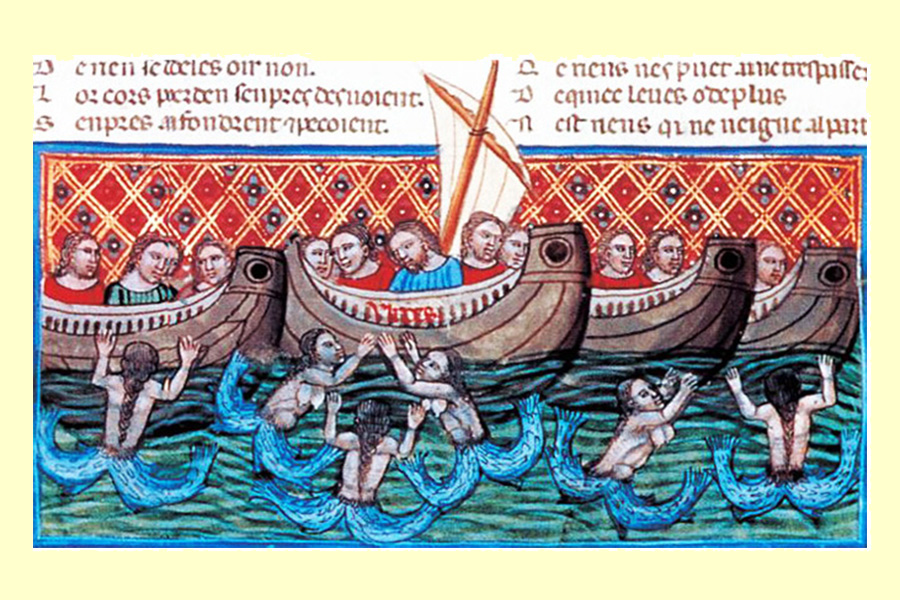 e neu se deles oir non.
L or cors perden senpres desuoient.
S enpres afondrent 7 pecoient.
e riens nes puet trespasser
leues o de plus
est riens qi ne ueigne al part